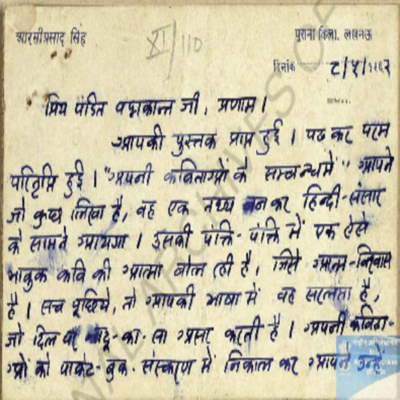 आरसीप्रसाद सिंह
पुराना किला, लखनऊ
XI/110
दिनांक ८/५/१९६२
प्रिय पंडित पद्मकान्त जी, प्रणाम।
आपकी पुस्तक प्राप्त हुई। पढ़ कर परम
परितृप्ति हुई। "अपनी कविताओं के सम्बन्ध में" आपने
जो कुछ लिखा है, वह एक तथ्य बन कर हिन्दी-संसार
के सामने आयगा। इसकी पंक्ति-पंक्ति में एक ऐसे
भावुक कवि की आत्मा बोल रही है, जिसे आत्म-विश्वास
है। सच पूछिये, तो आपकी भाषा में वह सरलता है,
जो दिल पर जादू-का-सा असर करती है। अपनी कविता-
ओं को पाकेट-बुक-संस्करण में निकाल कर आपने उन्हें